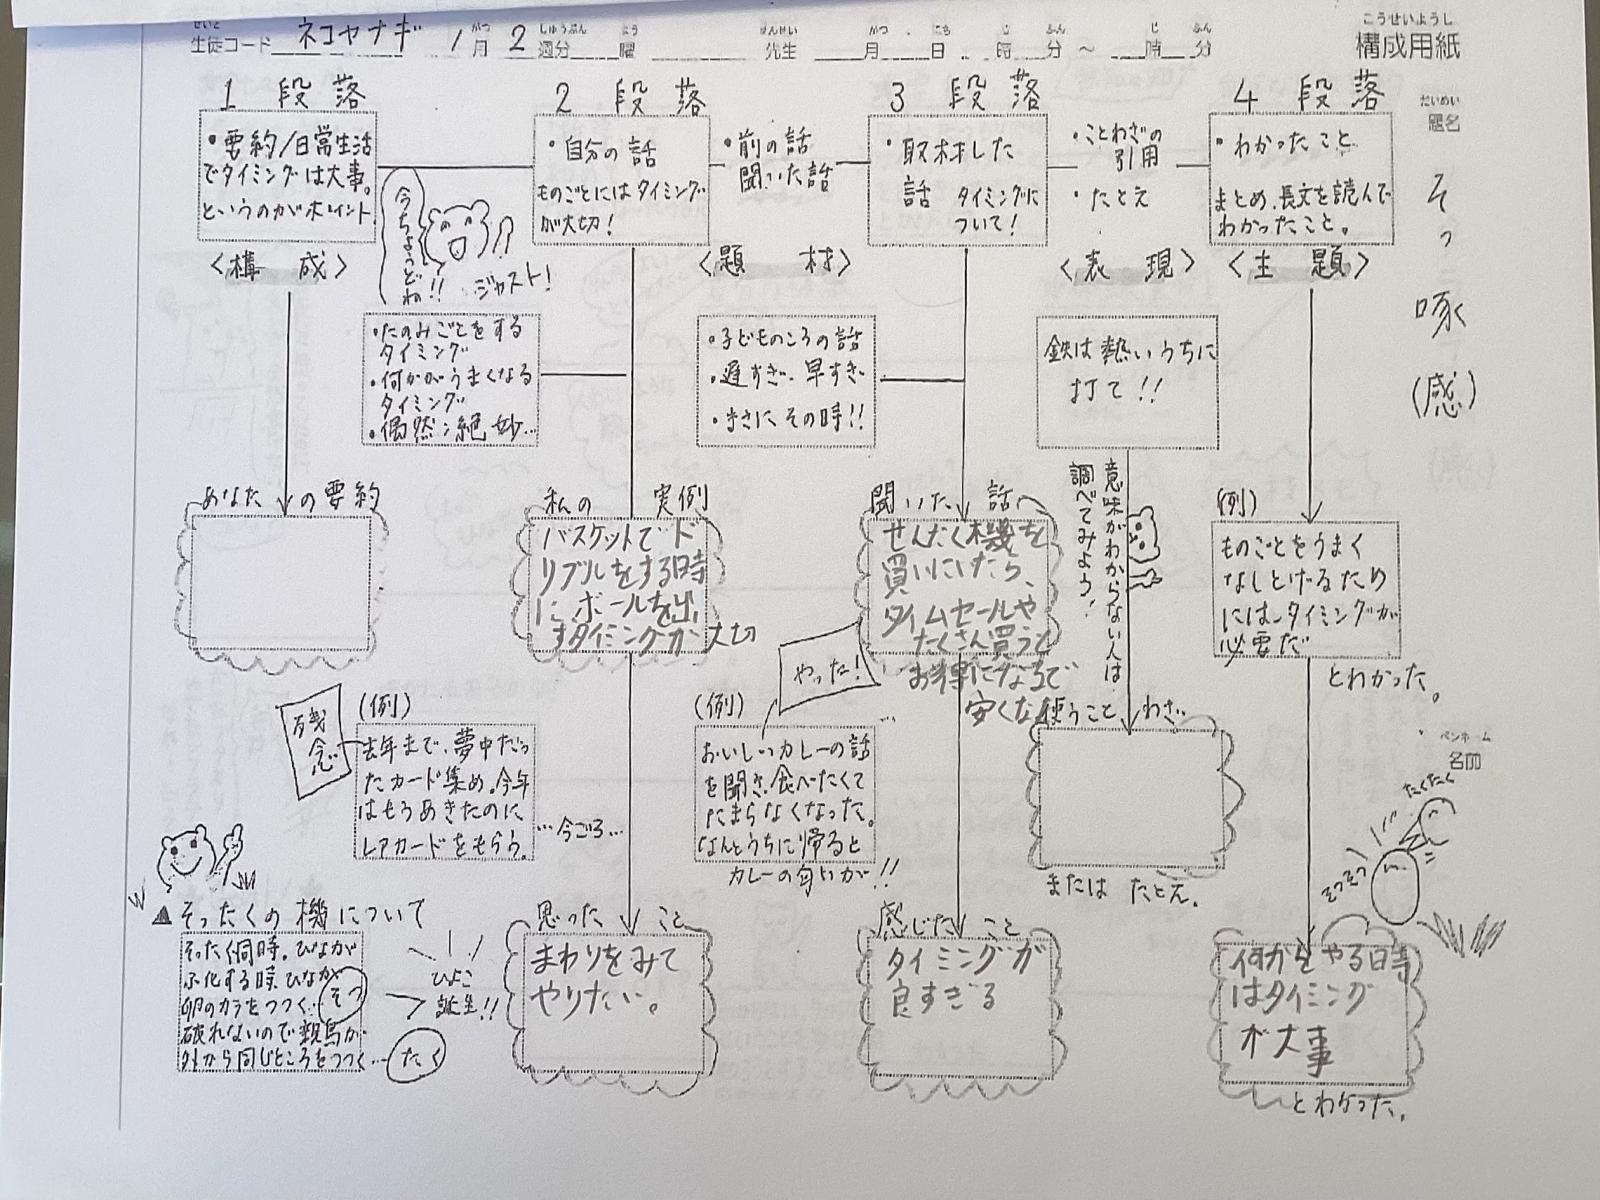 せいと
生徒コード ネコヤナギ 1月 2週分 曜 先生 月 日 時 分 ～ 時 分
こうせいようし
構成用紙
1 段落
・要約/日常生活
でタイミングは大事。
というのがポイント
〈構 成〉
今ちょうどね!!
ジャスト!
2 段落
・自分の話
ものごとにはタイミング
が大切!
・前の話
聞いた話
〈題 材〉
3 段落
・取材した
話 タイミングに
ついて!
・ことわざの
引用
・たとえ
〈表 現〉
4 段落
・わかったこと
まとめ、長文を読んで
わかったこと。
〈主 題〉
だいめい
題名
そっ
啄
(感)
・たのみごとをする
タイミング
・何かがうまくなる
タイミング
・偶然:絶妙…
・子どものころの話
・遅すぎ、早すぎ
・まさにその時!!
鉄は熱いうちに
打て!!
意味がわからない人は
調べてみよう!
あなたの要約
私の 実例
バスケットでド
リブルをする時
にボールを出
すタイミングが大切
聞いた 話
せんたく機を
買いにいたら、
タイムセールや
たくさん買うと
お得になるで
安くな
やった!
(例)
ものごとをうまく
なしとげるため
には、タイミングが
必要だ
とわかった。
残念
(例)
去年まで、夢中だっ
たカード集め。今年
はもうあきたのに
レアカードをもらう。
…今ごろ…
(例)
おいしいカレーの話
を聞き、食べたくて
たまらなくなった。
なんとうちに帰ると
カレーの匂いが!!
使うことわざ
または たとえ。
ペンネーム
名前
たくたく
そつそつ
▲そったくの機について
そったく同時。ひなが
ふ化する時、ひなが
卵のカラをつつく…そつ
破れないので親鳥が
外から同じところをつつく…たく
ひよこ
誕生!!
思ったこと
まわりをみて
やりたい。
感じたこと
タイミングが
良すぎる
何かをやる時
はタイミング
が大事
とわかった。